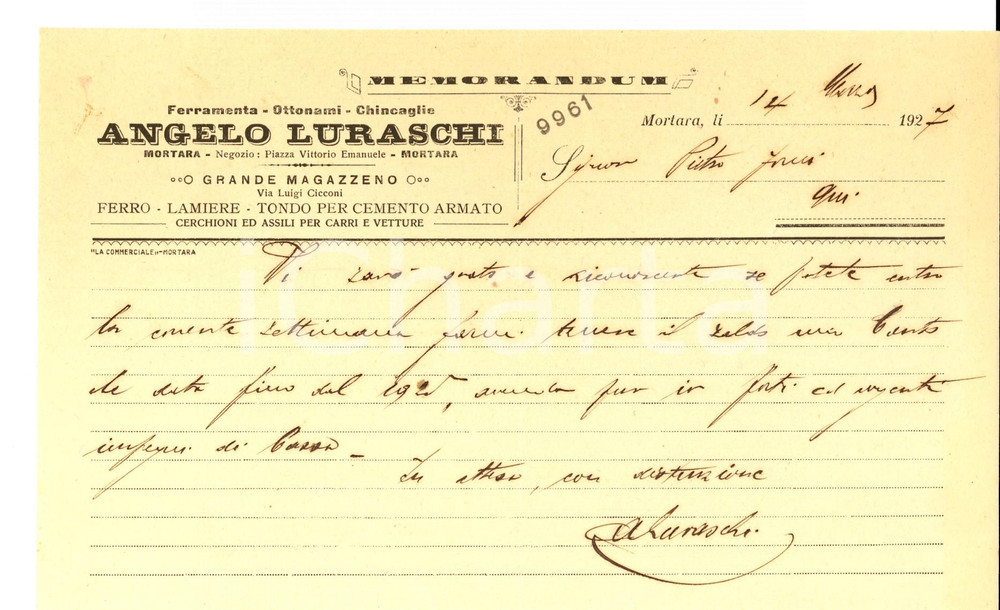 MEMORANDUM
Ferramenta - Ottonami - Chincaglie
ANGELO LURASCHI
MORTARA - Negozio: Piazza Vittorio Emanuele - MORTARA
GRANDE MAGAZZENO
Via Luigi Cicconi
FERRO - LAMIERE - TONDO PER CEMENTO ARMATO
CERCHIONI ED ASSILI PER CARRI E VETTURE
"LA COMMERCIALE"-MORTARA
9961
Mortara, li 14 Marzo 1927
Signor Pietro
Qui
Vi sarò grato e riconoscente se potete entro
la corrente settimana farmi tenere il saldo mio Conto
che data fino dal 1925, avendo pur io forti ed urgenti
impegni di Cassa -
In attesa, con distinzione
ALuraschi
iCharta